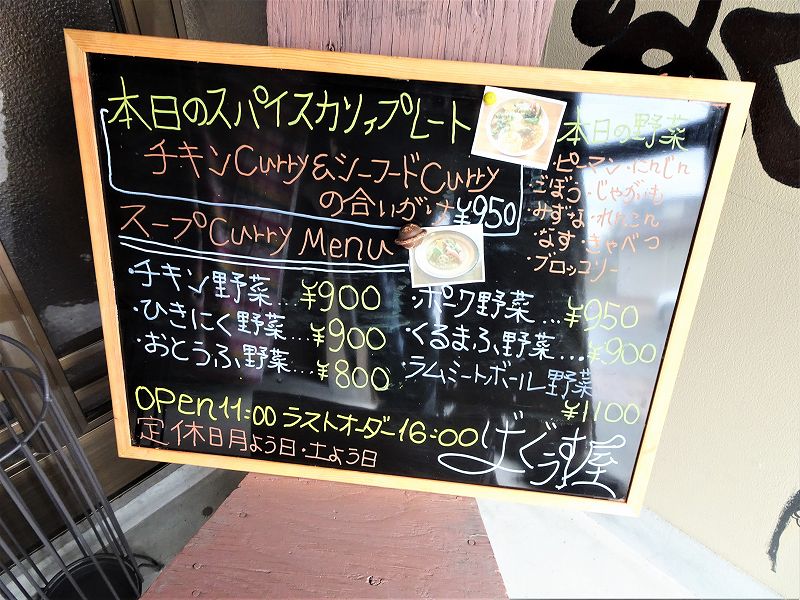 本日のスパイスカリィプレート
チキンCurry&シーフードCurry
の合いがけ¥950
スープCurry Menu
・チキン野菜...¥900
・ひきにく野菜...¥900
・おとうふ野菜...¥800
・ポーク野菜...¥950
・くるまふ野菜...¥900
・ラムミートボール野菜
¥1100
本日の野菜
・ピーマン・にんじん
・ごぼう・じゃがいも
・みずな・れんこん
・なす・きゃべつ
・ブロッコリー
OPEN11:00 ラストオーダー16:00
定休日月よう日・土よう日
げぐす屋